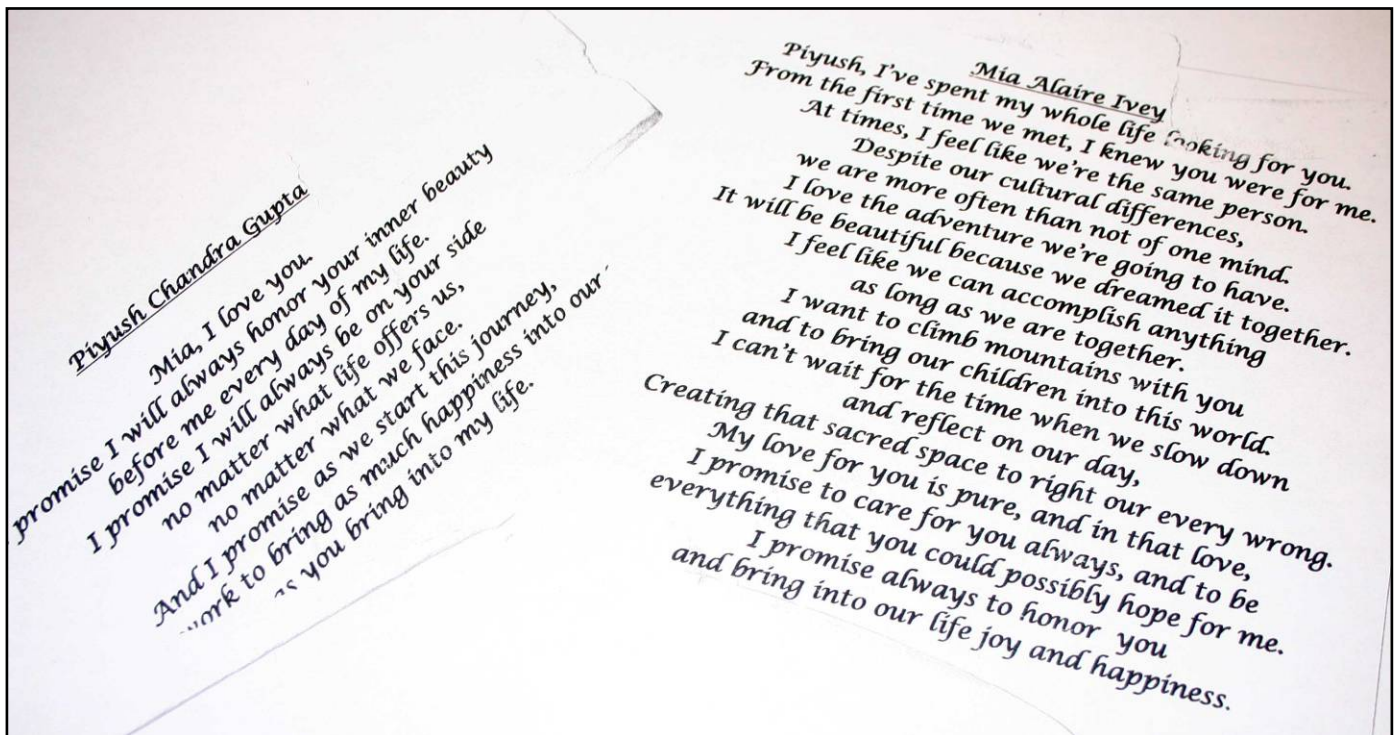 Piyush Chandra Gupta
Mia, I love you.
promise I will always honor your inner beauty
before me every day of my life.
I promise I will always be on your side
no matter what life offers us,
no matter what we face.
And I promise as we start this journey,
work to bring as much happiness into our
as you bring into my life.
Mia Alaire Ivey
Piyush, I've spent my whole life looking for you.
From the first time we met, I knew you were for me.
At times, I feel like we're the same person.
Despite our cultural differences,
we are more often than not of one mind.
I love the adventure we're going to have.
It will be beautiful because we dreamed it together.
I feel like we can accomplish anything
as long as we are together.
I want to climb mountains with you
and to bring our children into this world.
I can't wait for the time when we slow down
and reflect on our day,
Creating that sacred space to right our every wrong.
My love for you is pure, and in that love,
I promise to care for you always, and to be
everything that you could possibly hope for me.
I promise always to honor you
and bring into our life joy and happiness.